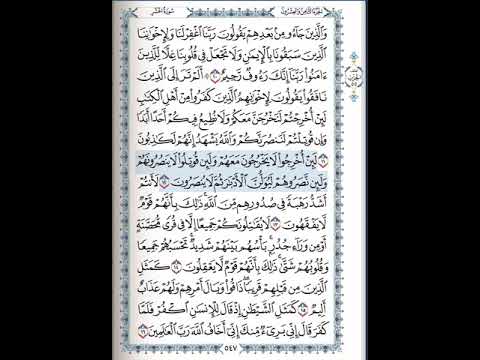 الجزء الثامن والعشرون سورة الحشر
وَٱلَّذِينَ جَآءُو مِنۢ بَعْدِهِمْ يَقُولُونَ رَبَّنَا ٱغْفِرْ لَنَا وَلِإِخْوَٰنِنَا
ٱلَّذِينَ سَبَقُونَا بِٱلْإِيمَٰنِ وَلَا تَجْعَلْ فِى قُلُوبِنَا غِلًّا لِّلَّذِينَ
ءَامَنُوا۟ رَبَّنَآ إِنَّكَ رَءُوفٌ رَّحِيمٌ ١٠ ۞ أَلَمْ تَرَ إِلَى ٱلَّذِينَ
نَافَقُوا۟ يَقُولُونَ لِإِخْوَٰنِهِمُ ٱلَّذِينَ كَفَرُوا۟ مِنْ أَهْلِ ٱلْكِتَٰبِ
لَئِنْ أُخْرِجْتُمْ لَنَخْرُجَنَّ مَعَكُمْ وَلَا نُطِيعُ فِيكُمْ أَحَدًا أَبَدًا
وَإِن قُوتِلْتُمْ لَنَنصُرَنَّكُمْ وَٱللَّهُ يَشْهَدُ إِنَّهُمْ لَكَٰذِبُونَ
١١ لَئِنْ أُخْرِجُوا۟ لَا يَخْرُجُونَ مَعَهُمْ وَلَئِن قُوتِلُوا۟ لَا يَنصُرُونَهُمْ
وَلَئِن نَّصَرُوهُمْ لَيُوَلُّنَّ ٱلْأَدْبَٰرَ ثُمَّ لَا يُنصَرُونَ ١٢ لَأَنتُمْ
أَشَدُّ رَهْبَةً فِى صُدُورِهِم مِّنَ ٱللَّهِ ۚ ذَٰلِكَ بِأَنَّهُمْ قَوْمٌ
لَّا يَفْقَهُونَ ١٣ لَا يُقَٰتِلُونَكُمْ جَمِيعًا إِلَّا فِى قُرًى مُّحَصَّنَةٍ
أَوْ مِن وَرَآءِ جُدُرٍۭ ۚ بَأْسُهُم بَيْنَهُمْ شَدِيدٌ ۚ تَحْسَبُهُمْ جَمِيعًا
وَقُلُوبُهُمْ شَتَّىٰ ۚ ذَٰلِكَ بِأَنَّهُمْ قَوْمٌ لَّا يَعْقِلُونَ ١٤ كَمَثَلِ
ٱلَّذِينَ مِن قَبْلِهِمْ قَرِيبًا ۖ ذَاقُوا۟ وَبَالَ أَمْرِهِمْ وَلَهُمْ عَذَابٌ
أَلِيمٌ ١٥ كَمَثَلِ ٱلشَّيْطَٰنِ إِذْ قَالَ لِلْإِنسَٰنِ ٱكْفُرْ فَلَمَّا
كَفَرَ قَالَ إِنِّى بَرِىٓءٌ مِّنكَ إِنِّىٓ أَخَافُ ٱللَّهَ رَبَّ ٱلْعَٰلَمِينَ ١٦
٥٤٧